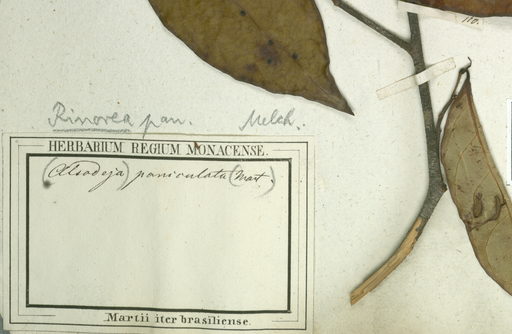 110.
Rinorea pan. Melch.
HERBARIUM REGIUM MONACENSE.
(Alsodeja) paniculata (Mart.
Martii iter brasiliense.